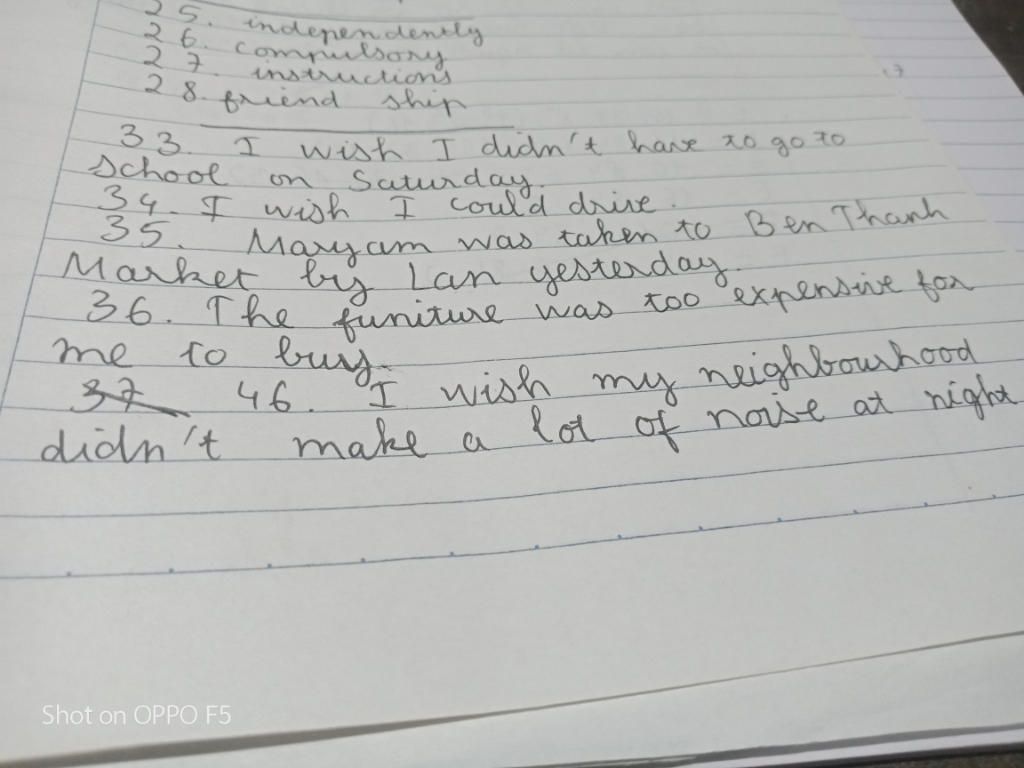 25. independently
26. compulsory
27. instructions
28. friend ship
33. I wish I didn't have to go to
school on Saturday.
34. I wish I could drive.
35. Maryam was taken to Ben Thanh
Market by Lan yesterday.
36. The funiture was too expensive for
me to buy.
37 46. I wish my neighbourhood
didn't make a lot of noise at night
Shot on OPPO F5